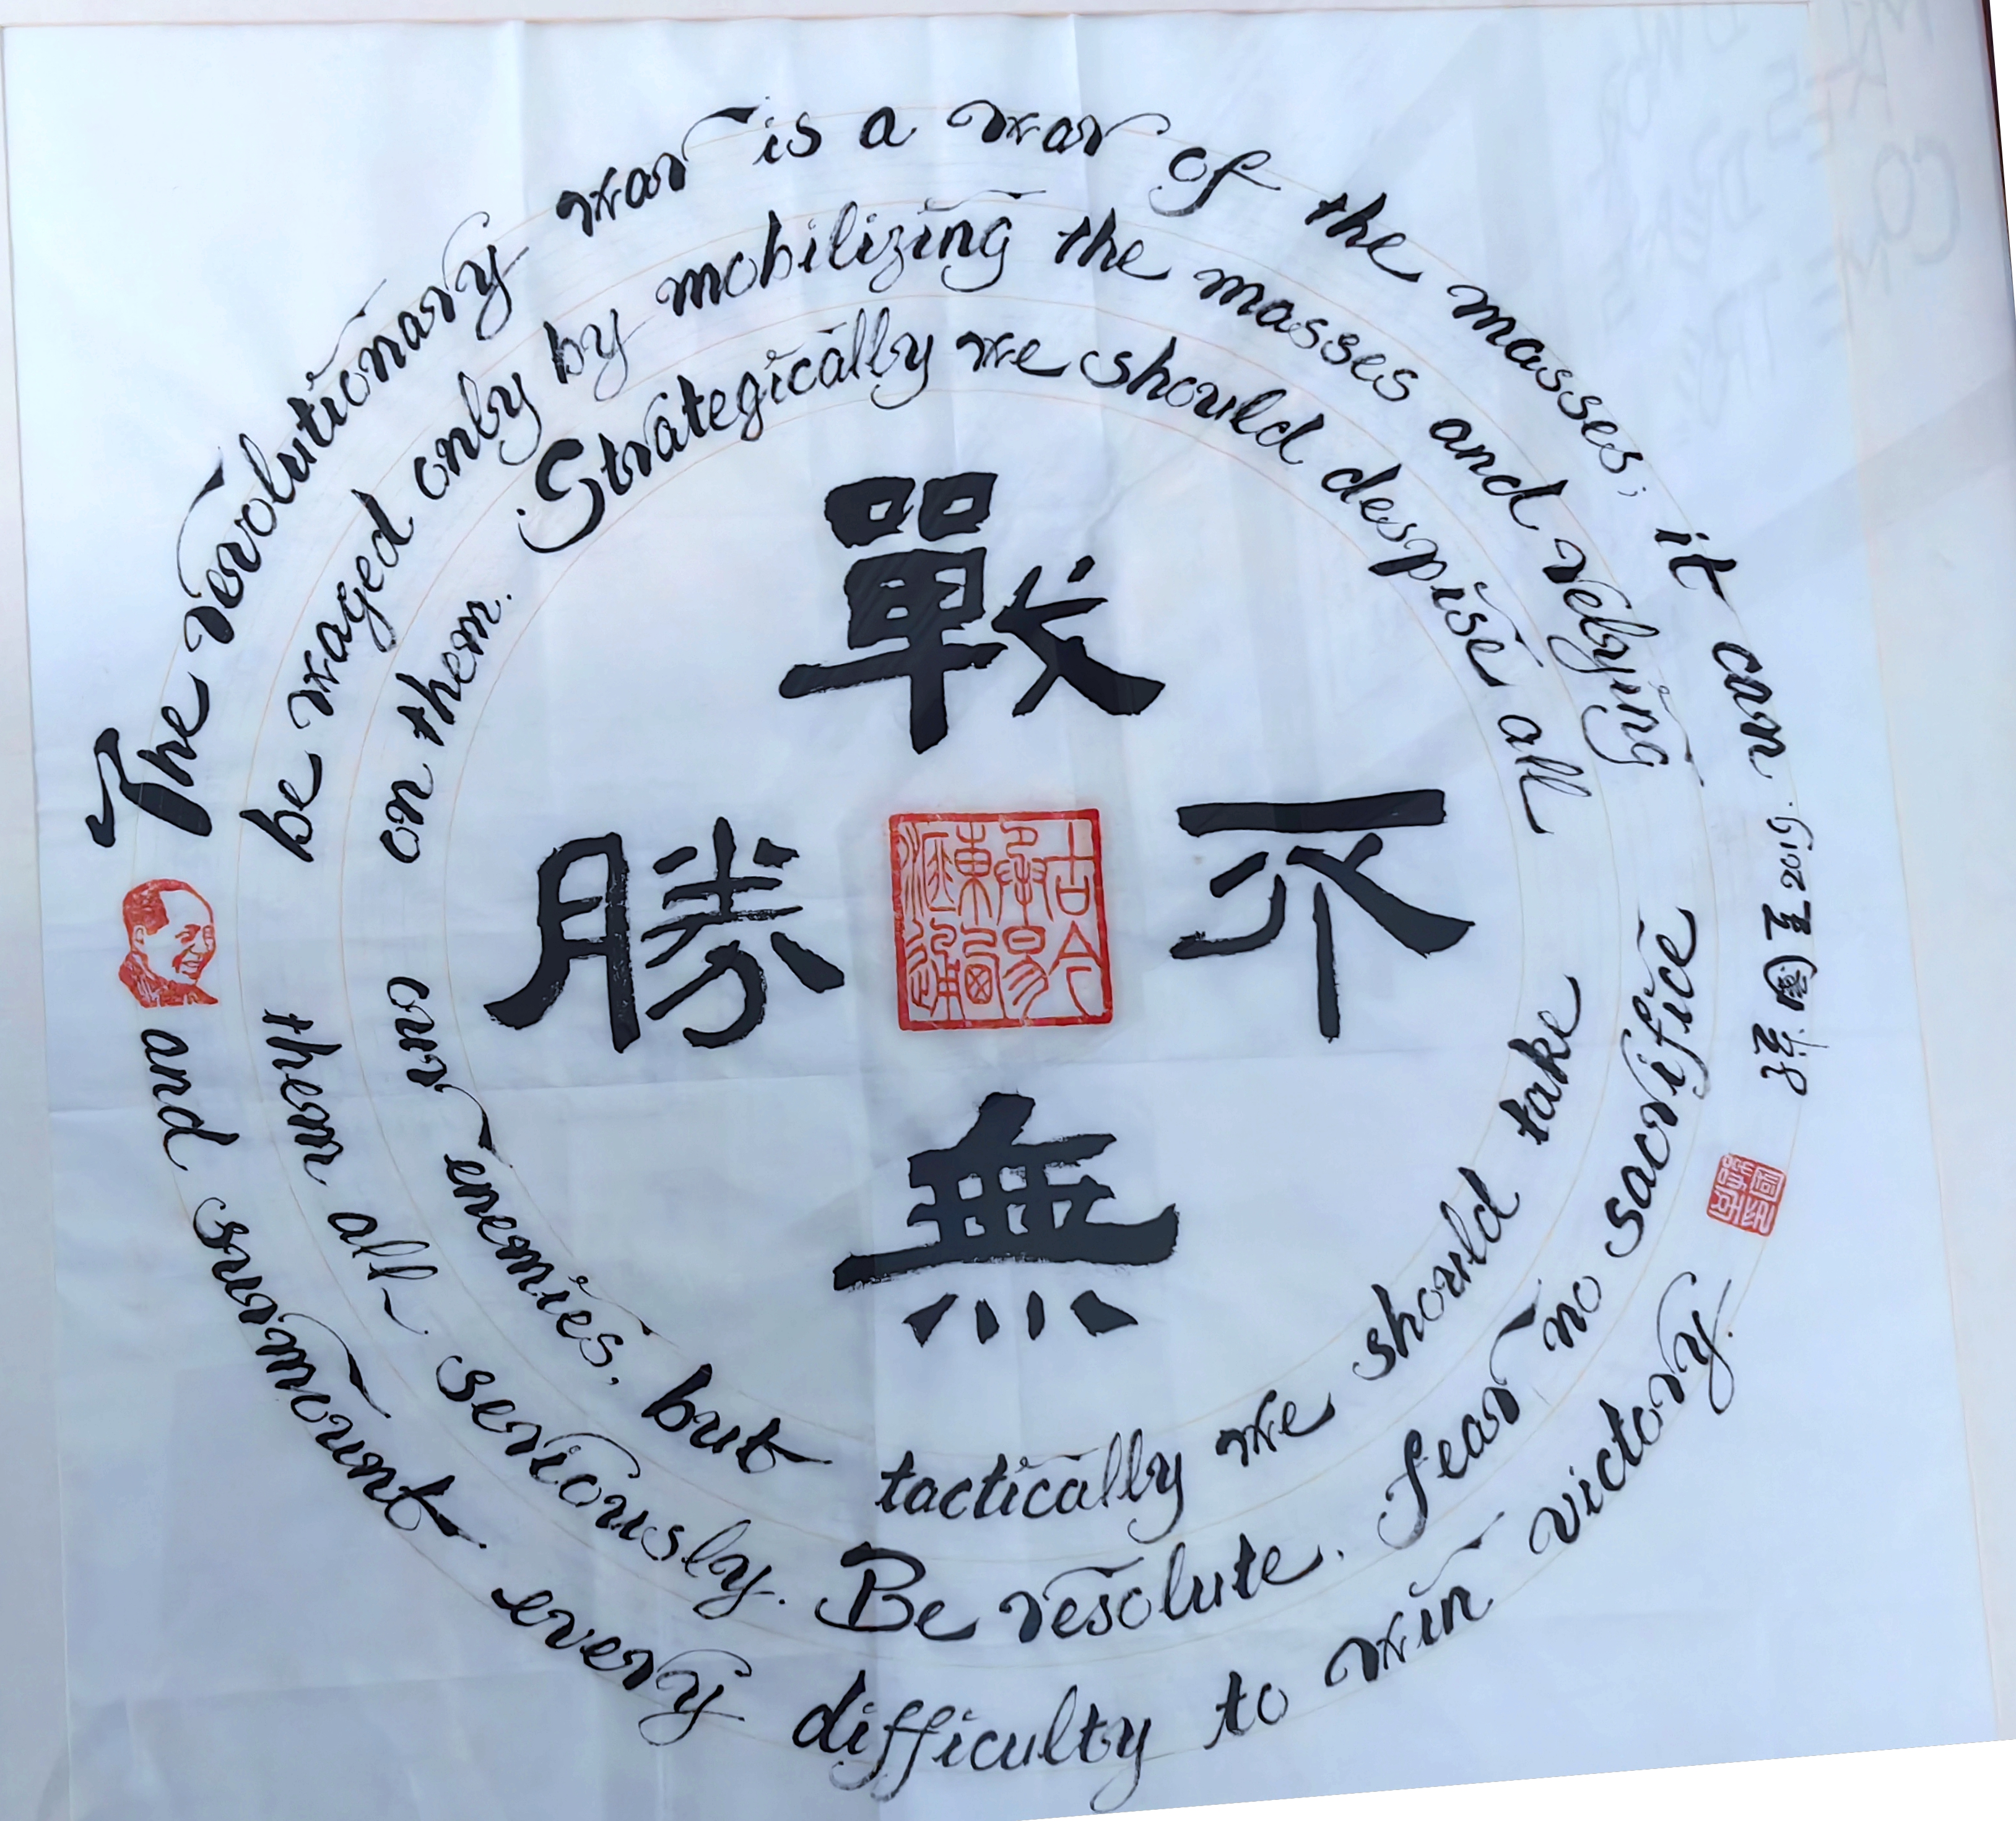 The revolutionary war is a war of the masses; it can
be waged only by mobilizing the masses and relying
on them. Strategically we should despise all
our enemies, but tactically we should take
them all seriously. Be resolute. fear no sacrifice
and surmount every difficulty to win victory.
戰
不
無
勝
古今
東
孫國
2019.